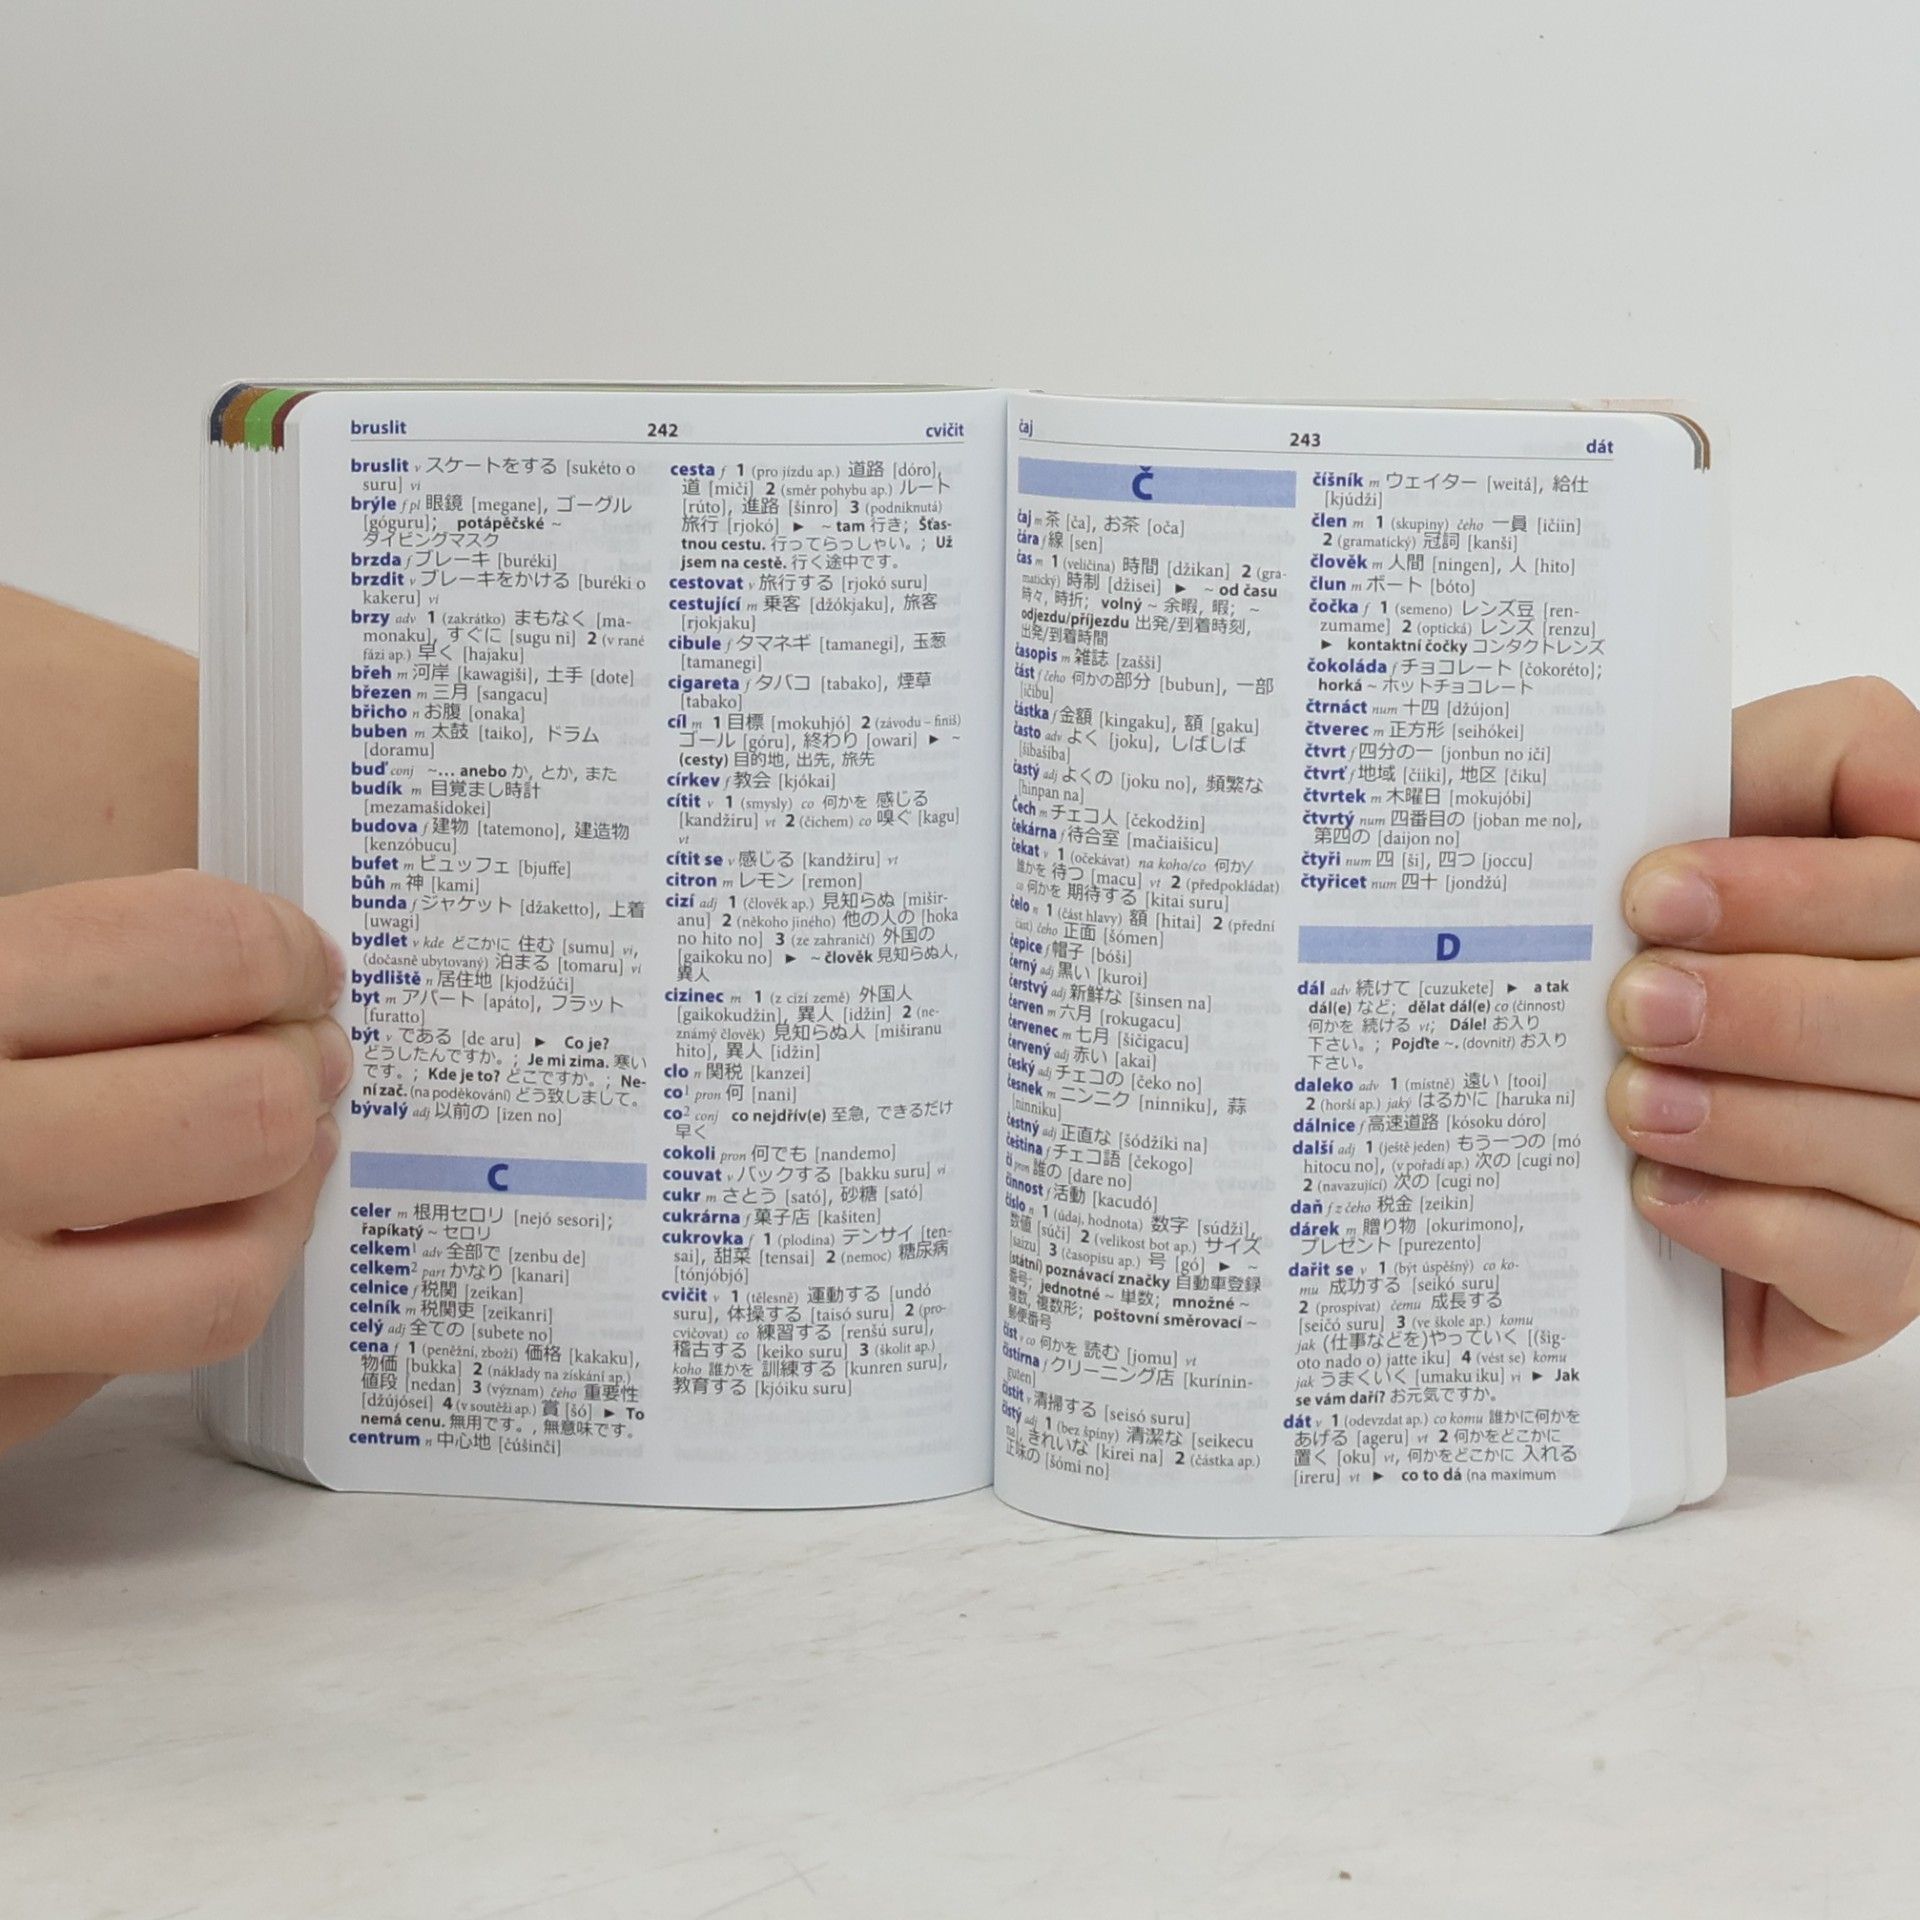 bruslit 242 cvičit
bruslit v スケートをする [sukéto o
suru] vi
brýle f pl 眼鏡 [megane], ゴーグル
[góguru]; potápěčské ~
ダイビングマスク
brzda f ブレーキ [buréki]
brzdit v ブレーキをかける [buréki o
kakeru] vi
brzy adv 1 (zakrátko) まもなく [ma-
monaku], すぐに [sugu ni] 2 (v rané
fázi ap.) 早く [hajaku]
břeh m 河岸 [kawagiši], 土手 [dote]
březen m 三月 [sangacu]
břicho n お腹 [onaka]
buben m 太鼓 [taiko], ドラム
[doramu]
buď conj ~... anebo か, とか, また
budík m 目覚まし時計
[mezamašidokei]
budova f 建物 [tatemono], 建造物
[kenzóbucu]
bufet m ビュッフェ [bjuffe]
bůh m 神 [kami]
bunda f ジャケット [džaketto], 上着
[uwagi]
bydlet v kde どこかに 住む [sumu] vi,
(dočasně ubytovaný) 泊まる [tomaru] vi
bydliště n 居住地 [kjodžúči]
byt m アパート [apáto], フラット
[furatto]
být v である [de aru] ► Co je?
どうしたんですか。; Je mi zima. 寒い
です。; Kde je to? どこですか。; Ne-
ní zač. (na poděkování) どう致しまして。
bývalý adj 以前の [izen no]
C
celer m 根用セロリ [nejó sesori];
řapíkatý ~ セロリ
celkem1 adv 全部で [zenbu de]
celkem2 part かなり [kanari]
celnice f 税関 [zeikan]
celník m 税関吏 [zeikanri]
celý adj 全ての [subete no]
cena f 1 (peněžní, zboží) 価格 [kakaku],
物価 [bukka] 2 (náklady na získání ap.)
値段 [nedan] 3 (význam) čeho 重要性
[džújósei] 4 (v soutěži ap.) 賞 [šó] ► To
nemá cenu. 無用です。, 無意味です。
centrum n 中心地 [čúšinči]
cesta f 1 (pro jízdu ap.) 道路 [dóro],
道 [miči] 2 (směr pohybu ap.) ルート
[rúto], 進路 [šinro] 3 (podniknutá)
旅行 [rjokó] ► ~ tam 行き; Šťas-
tnou cestu. 行ってらっしゃい。; Už
jsem na cestě. 行く途中です。
cestovat v 旅行する [rjokó suru]
cestující m 乗客 [džókjaku], 旅客
[rjokjaku]
cibule f タマネギ [tamanegi], 玉葱
[tamanegi]
cigareta f タバコ [tabako], 煙草
[tabako]
cíl m 1 目標 [mokuhjó] 2 (závodu – finiš)
ゴール [góru], 終わり [owari] ► ~
(cesty) 目的地, 出先, 旅先
církev f 教会 [kjókai]
cítit v 1 (smysly) co 何かを 感じる
[kandžiru] vt 2 (čichem) co 嗅ぐ [kagu]
vt
cítit se v 感じる [kandžiru] vt
citron m レモン [remon]
cizí adj 1 (člověk ap.) 見知らぬ [mišir-
anu] 2 (někoho jiného) 他の人の [hoka
no hito no] 3 (ze zahraničí) 外国の
[gaikoku no] ► ~ člověk 見知らぬ人,
異人
cizinec m 1 (z cizí země) 外国人
[gaikokudžin], 異人 [idžin] 2 (ne-
známý člověk) 見知らぬ人 [miširanu
hito], 異人 [idžin]
clo n 関税 [kanzei]
co1 pron 何 [nani]
co2 conj co nejdřív(e) 至急, できるだけ
早く
cokoli pron 何でも [nandemo]
couvat v バックする [bakku suru] vi
cukr m さとう [sató], 砂糖 [sató]
cukrárna f 菓子店 [kašiten]
cukrovka f 1 (plodina) テンサイ [ten-
sai], 甜菜 [tensai] 2 (nemoc) 糖尿病
[tónjóbjó]
cvičit v 1 (tělesně) 運動する [undó
suru], 体操する [taisó suru] 2 (pro-
cvičovat) co 練習する [renšú suru],
稽古する [keiko suru] 3 (školit ap.)
koho 誰かを 訓練する [kunren suru],
教育する [kjóiku suru]
čaj 243 dát
Č
čaj m 茶 [ča], お茶 [oča]
čára f 線 [sen]
čas m 1 (veličina) 時間 [džikan] 2 (gra-
matický) 時制 [džisei] ► ~ od času
時々, 時折; volný ~ 余暇, 暇; ~
odjezdu/příjezdu 出発/到着時刻,
出発/到着時間
časopis m 雑誌 [zašši]
část f čeho 何かの部分 [bubun], 一部
[ičibu]
částka f 金額 [kingaku], 額 [gaku]
často adv よく [joku], しばしば
[šibašiba]
častý adj よくの [joku no], 頻繁な
[hinpan na]
Čech m チェコ人 [čekodžin]
čekárna f 待合室 [mačiaišicu]
čekat v 1 (očekávat) na koho/co 何か/
誰かを 待つ [macu] vt 2 (předpokládat)
co 何かを 期待する [kitai suru]
čelo n 1 (část hlavy) 額 [hitai] 2 (přední
část) čeho 正面 [šómen]
čepice f 帽子 [bóši]
černý adj 黒い [kuroi]
čerstvý adj 新鮮な [šinsen na]
červen m 六月 [rokugacu]
červenec m 七月 [šičigacu]
červený adj 赤い [akai]
český adj チェコの [čeko no]
česnek m ニンニク [ninniku], 蒜
[ninniku]
čestný adj 正直な [šódžíki na]
čeština f チェコ語 [čekogo]
čí pron 誰の [dare no]
činnost f 活動 [kacudó]
číslo n 1 (údaj, hodnota) 数字 [súdži],
数値 [súči] 2 (velikost bot ap.) サイズ
[saizu] 3 (časopisu ap.) 号 [gó] ► ~
(státní) poznávací značky 自動車登録
番号; jednotné ~ 単数; množné ~
複数, 複数形; poštovní směrovací ~
郵便番号
číst v co 何かを 読む [jomu] vt
čistírna f クリーニング店 [kurínin-
guten]
čistit v 清掃する [seisó suru]
čistý adj 1 (bez špíny) 清潔な [seikecu
na], きれいな [kirei na] 2 (částka ap.)
正味の [šómi no]
číšník m ウェイター [weitá], 給仕
[kjúdži]
člen m 1 (skupiny) čeho 一員 [ičiin]
2 (gramatický) 冠詞 [kanši]
člověk m 人間 [ningen], 人 [hito]
člun m ボート [bóto]
čočka f 1 (semeno) レンズ豆 [ren-
zumame] 2 (optická) レンズ [renzu]
► kontaktní čočky コンタクトレンズ
čokoláda f チョコレート [čokoréto];
horká ~ ホットチョコレート
čtrnáct num 十四 [džújon]
čtverec m 正方形 [seihókei]
čtvrt f 四分の一 [jonbun no iči]
čtvrť f 地域 [čiiki], 地区 [čiku]
čtvrtek m 木曜日 [mokujóbi]
čtvrtý num 四番目の [joban me no],
第四の [daijon no]
čtyři num 四 [ši], 四つ [joccu]
čtyřicet num 四十 [jondžú]
D
dál adv 続けて [cuzukete] ► a tak
dál(e) など; dělat dál(e) co (činnost)
何かを 続ける vt; Dále! お入り
下さい。; Pojďte ~. (dovnitř) お入り
下さい。
daleko adv 1 (místně) 遠い [tooi]
2 (horší ap.) jaký はるかに [haruka ni]
dálnice f 高速道路 [kósoku dóro]
další adj 1 (ještě jeden) もう一つの [mó
hitocu no], (v pořadí ap.) 次の [cugi no]
2 (navazující) 次の [cugi no]
daň f z čeho 税金 [zeikin]
dárek m 贈り物 [okurimono],
プレゼント [purezento]
dařit se v 1 (být úspěšný) co ko-
mu 成功する [seikó suru]
2 (prospívat) čemu 成長する
[seičó suru] 3 (ve škole ap.) komu
jak (仕事などを)やっていく [(šig-
oto nado o) jatte iku] 4 (vést se) komu
jak うまくいく [umaku iku] vi ► Jak
se vám daří? お元気ですか。
dát v 1 (odevzdat ap.) co komu 誰かに何かを
あげる [ageru] vt 2 何かをどこかに
置く [oku] vt, 何かをどこかに 入れる
[ireru] vt ► co to dá (na maximum